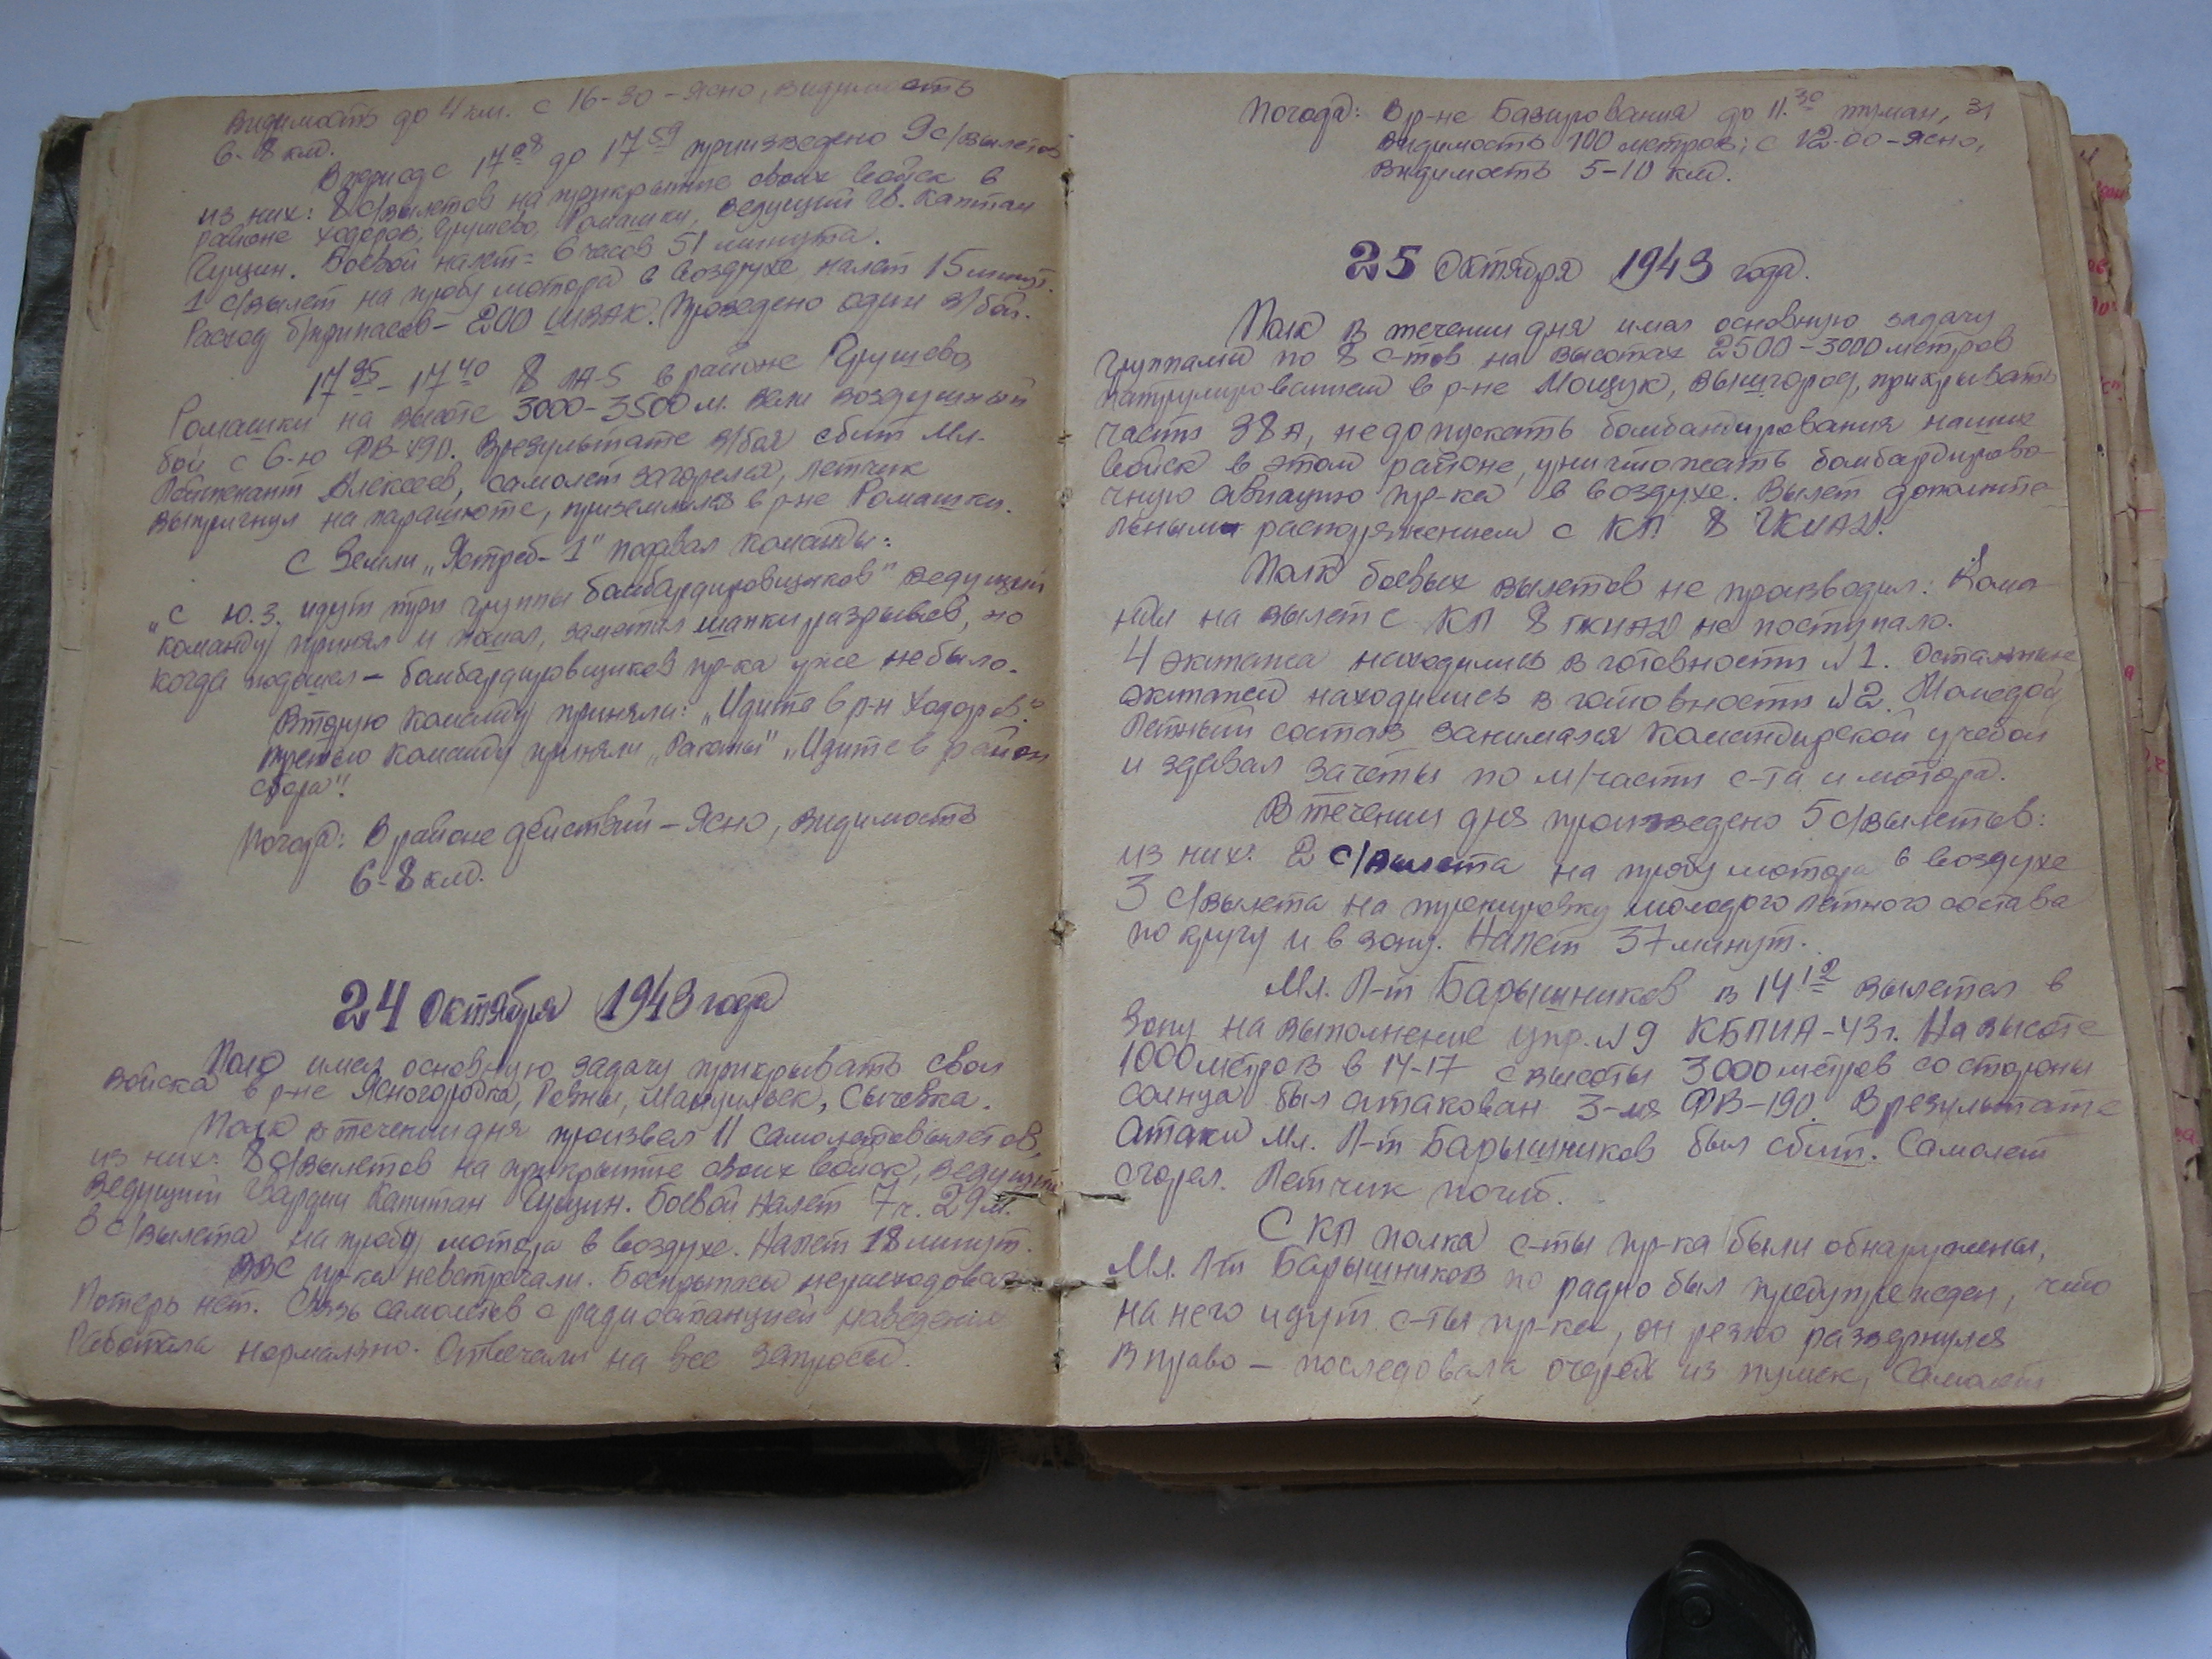 Видимость до 4 км. с 16-30 - Ясно, видимость
6-8 км.
В период с 17 08 до 17 59 произведено 9 с/вылетов
из них: 8 с/вылетов на прикрытие своих войск в
районе Ходоров, Грушево, Ромашки, ведущий Гв. Капитан
Гущин. Боевой налет = 6 часов 51 минута.
1 с/вылет на пробу мотора в воздухе налет 15 минут.
Расход б/припасов - 200 ШВАК. Проведено один в/бой.
17 35 - 17 40 8 ЛА-5 в районе Грушево,
Ромашки на высоте 3000-3500 м. вели воздушный
бой с 6-ю ФВ-190. В результате в/боя сбит Мл.
Лейтенант Алексеев, самолет загорелся, летчик
выпрыгнул на парашюте, приземлился в р-не Ромашки.
С Земли „Ястреб-1" подавал команды:
„с ю.з. идут три группы бомбардировщиков" ведущий
команду принял и пошел, заметил шапки разрывов, но
когда подошел - бомбардировщиков пр-ка уже не было.
Вторую команду приняли: „Идите в р-н Ходоров."
Третью команду приняли „Ракеты" „Идите в район
сбора"!
Погода: В районе действий - Ясно, видимость
6-8 км.
24 Октября 1943 года
Полк имел основную задачу прикрывать свои
войска в р-не Ясногородка, Ровны, Сычевка.
Полк в течении дня произвел 11 самолетовылетов,
из них: 8 с/вылетов на прикрытие своих войск, ведущий
ведущий Гвардии Капитан Гущин. Боевой налет 7 ч. 29 м.
3 с/вылета на пробу мотора в воздухе. Налет 18 минут.
ВВС пр-ка не встречали. Боеприпасы не расходовали
Потерь нет. Связь самолетов с радиостанцией наведения
Работала нормально. Отвечали на все запросы.
Погода: В р-не Базирования до 11.30 туман, 31
видимость 100 метров; с 12-00 - Ясно,
видимость 5-10 км.
25 Октября 1943 года.
Полк в течении дня имел основную задачу
Группами по 8 с-тов на высотах 2500-3000 метров
патрулированием в р-не Мощук, Вышгород, прикрывать
части 38 А, не допускать бомбандирования наших
войск в этом районе, уничтожать бомбардирово-
чную авиацию пр-ка в воздухе. Вылет дополните-
льным распоряжением с КП 8 ГКИАД.
Полк боевых вылетов не производил: Кома-
нды на вылет с КП 8 ГКИАД не поступало.
4 экипажа находились в готовности №1. Остальные
экипажи находились в готовности №2. Молодой
Летный состав занимался командирской учебой
и здавал зачеты по м/части с-та и мотора.
В течении дня произведено 5 с/вылетов:
из них: 2 с/вылета на пробу мотора в воздухе
3 с/вылета на тренировку молодого летного состава
по кругу и в зону. Налет 37 минут.
Мл. Л-т Барышников в 14 12 вылетел в
Зону на выполнение упр. №9 КБПИА-43 г. На высоте
1000 метров в 14-17 с высоты 3000 метров со стороны
солнца был атакован 3-мя ФВ-190. В результате
Атаки Мл. Л-т Барышников был сбит. Самолет
сгорел. Летчик погиб.
С КП полка с-ты пр-ка были обнаружены,
Мл. Л-т Барышников по радио был предупрежден, что
на него идут с-ты пр-ка, он резко развернулся
вправо - последовала очередь из пушек, Самолет